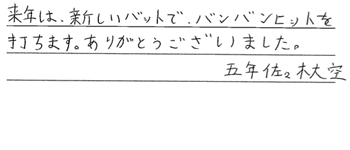 来年は、新しいバットで、バンバンヒットを
打ちます。ありがとうございました。
五年佐々木大空